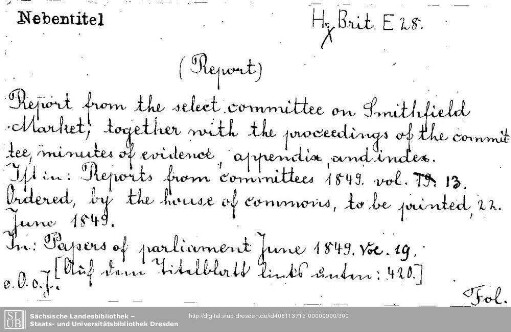 Nebentitel
H. Brit. E 28.
(Report)
Report from the select committee on Smithfield
Market, together with the proceedings of the commit
tee, minutes of evidence, appendix and index.
Ist in: Reports from committees 1849. vol. 13.
Ordered, by the house of commons, to be printed, 22.
June 1849.
In: Papers of parliament June 1849. Voc. 19.
[Auf dem Titelblatt links unten: 420.]
o. O. o. J.
Fol.
SLUB
Sächsische Landesbibliothek –
Staats- und Universitätsbibliothek Dresden